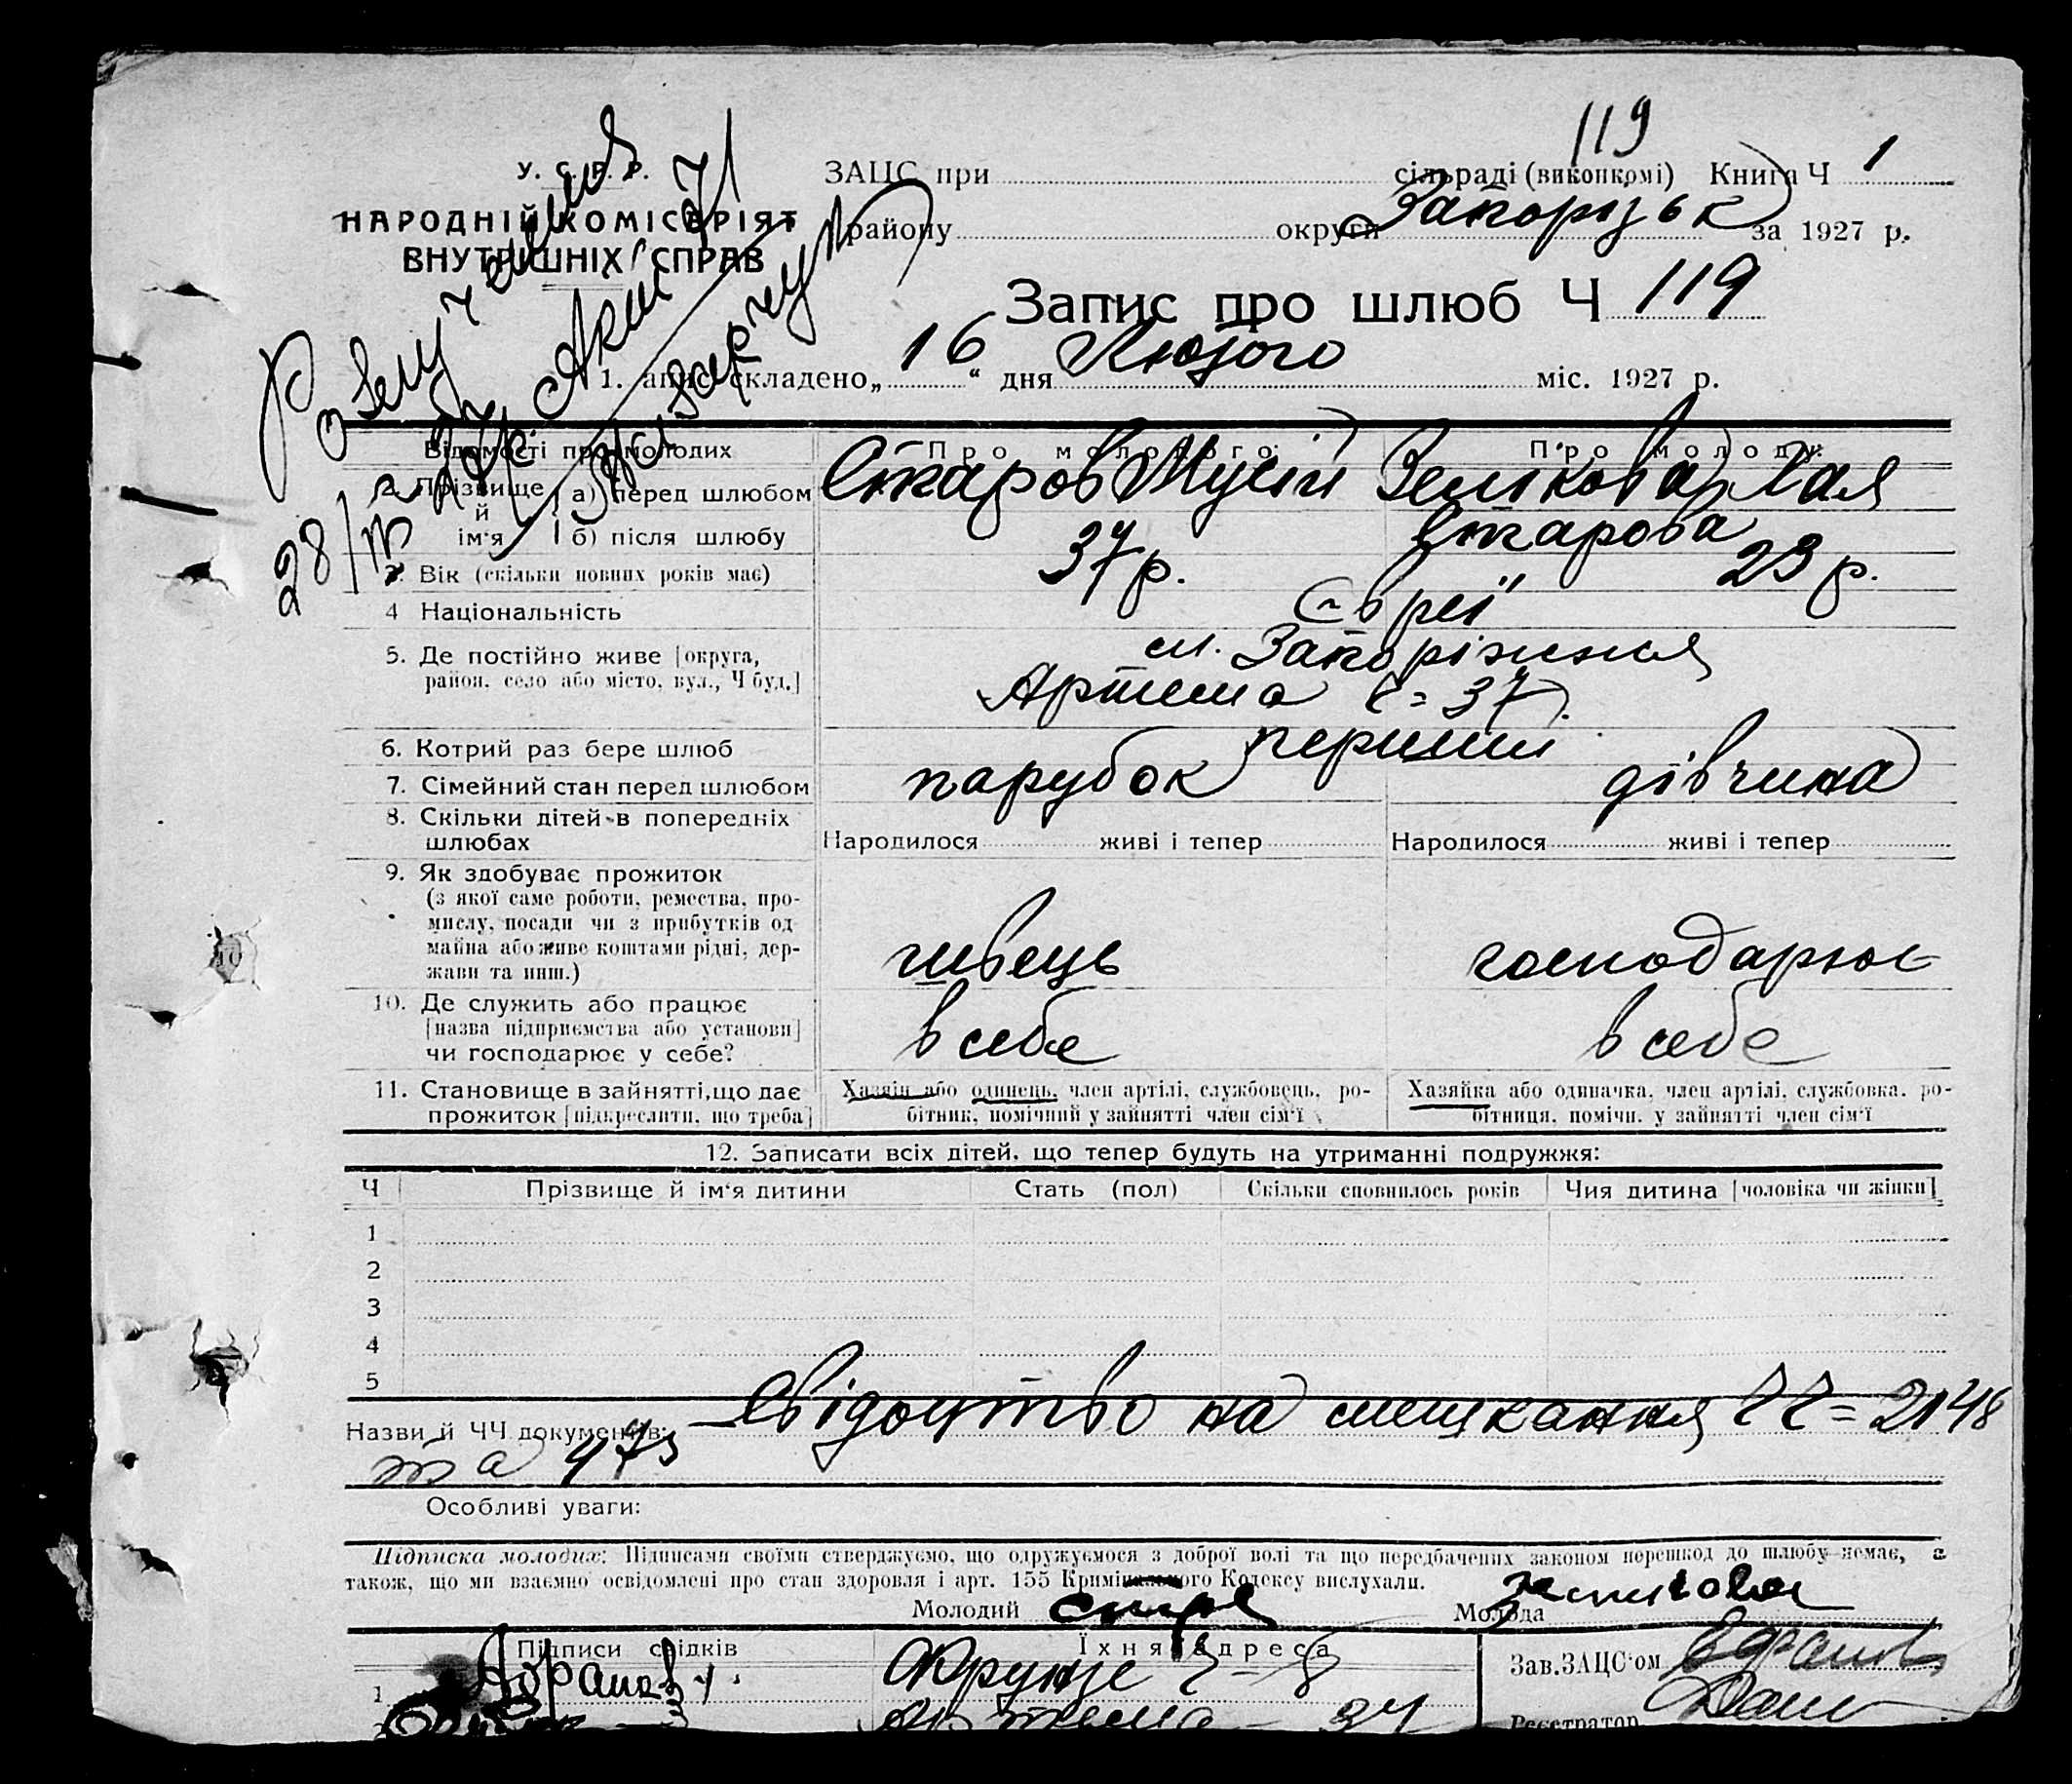 119
У. С. Р. Р.
НАРОДНІЙ КОМІСАРІЯТ
ВНУТРІШНІХ СПРАВ
ЗАЦС при сільраді (виконкомі) Книга Ч 1
району округи Запорізьк за 1927 р.
Запис про шлюб Ч 119
1. апис складено „16“ дня Лютого міс. 1927 р.
28/
Відомості про молодих
Про молодого:
Про молоду:
2. Прізвище й ім‘я
а) перед шлюбом
Старов Мусій
Хая
б) після шлюбу
Старова
3. Вік (скільки повних років має)
37 р.
23 р.
4 Національність
Євреї
5. Де постійно живе [округа,
район, село або місто, вул., Ч буд.]
м. Запоріжжя
Артема Ч = 37
6. Котрий раз бере шлюб
перший
7. Сімейний стан перед шлюбом
парубок
дівчина
8. Скільки дітей в попередніх
шлюбах
Народилося живі і тепер
Народилося живі і тепер
9. Як здобуває прожиток
(з якої саме роботи, ремества, про-
мислу, посади чи з прибутків од
майна або живе коштами рідні, дер-
жави та инш.)
швець
господарює
10. Де служить або працює
[назва підприємства або установи]
чи господарює у себе?
в себе
в себе
11. Становище в зайнятті, що дає
прожиток [підкреслити, що треба]
Хазяїн або одинець, член артілі, службовець, ро-
бітник, помічний у зайнятті член сім‘ї
Хазяйка або одиначка, член артілі, службовка, ро-
бітниця, помічн. у зайнятті член сім‘ї
12. Записати всіх дітей, що тепер будуть на утриманні подружжя:
Ч
Прізвище й ім‘я дитини
Стать (пол)
Скільки сповнилось років
Чия дитина [чоловіка чи жінки]
1
2
3
4
5
Назви й ЧЧ документів: Свідоцтво на мешкання ЧЧ = 2148
та 473
Особливі уваги:
Підписка молодих: Підписами своїми стверджуємо, що одружуємося з доброї волі та що передбачених законом перешкод до шлюбу немає, а
також, що ми взаємно освідомлені про стан здоровля і арт. 155 Кримінального Кодексу вислухали.
Молодий
Молода
Підписи свідків
Їхня адреса
Зав. ЗАЦС‘ом
1.
Фрунзе Ч - 8
Артема -
Реєстратор